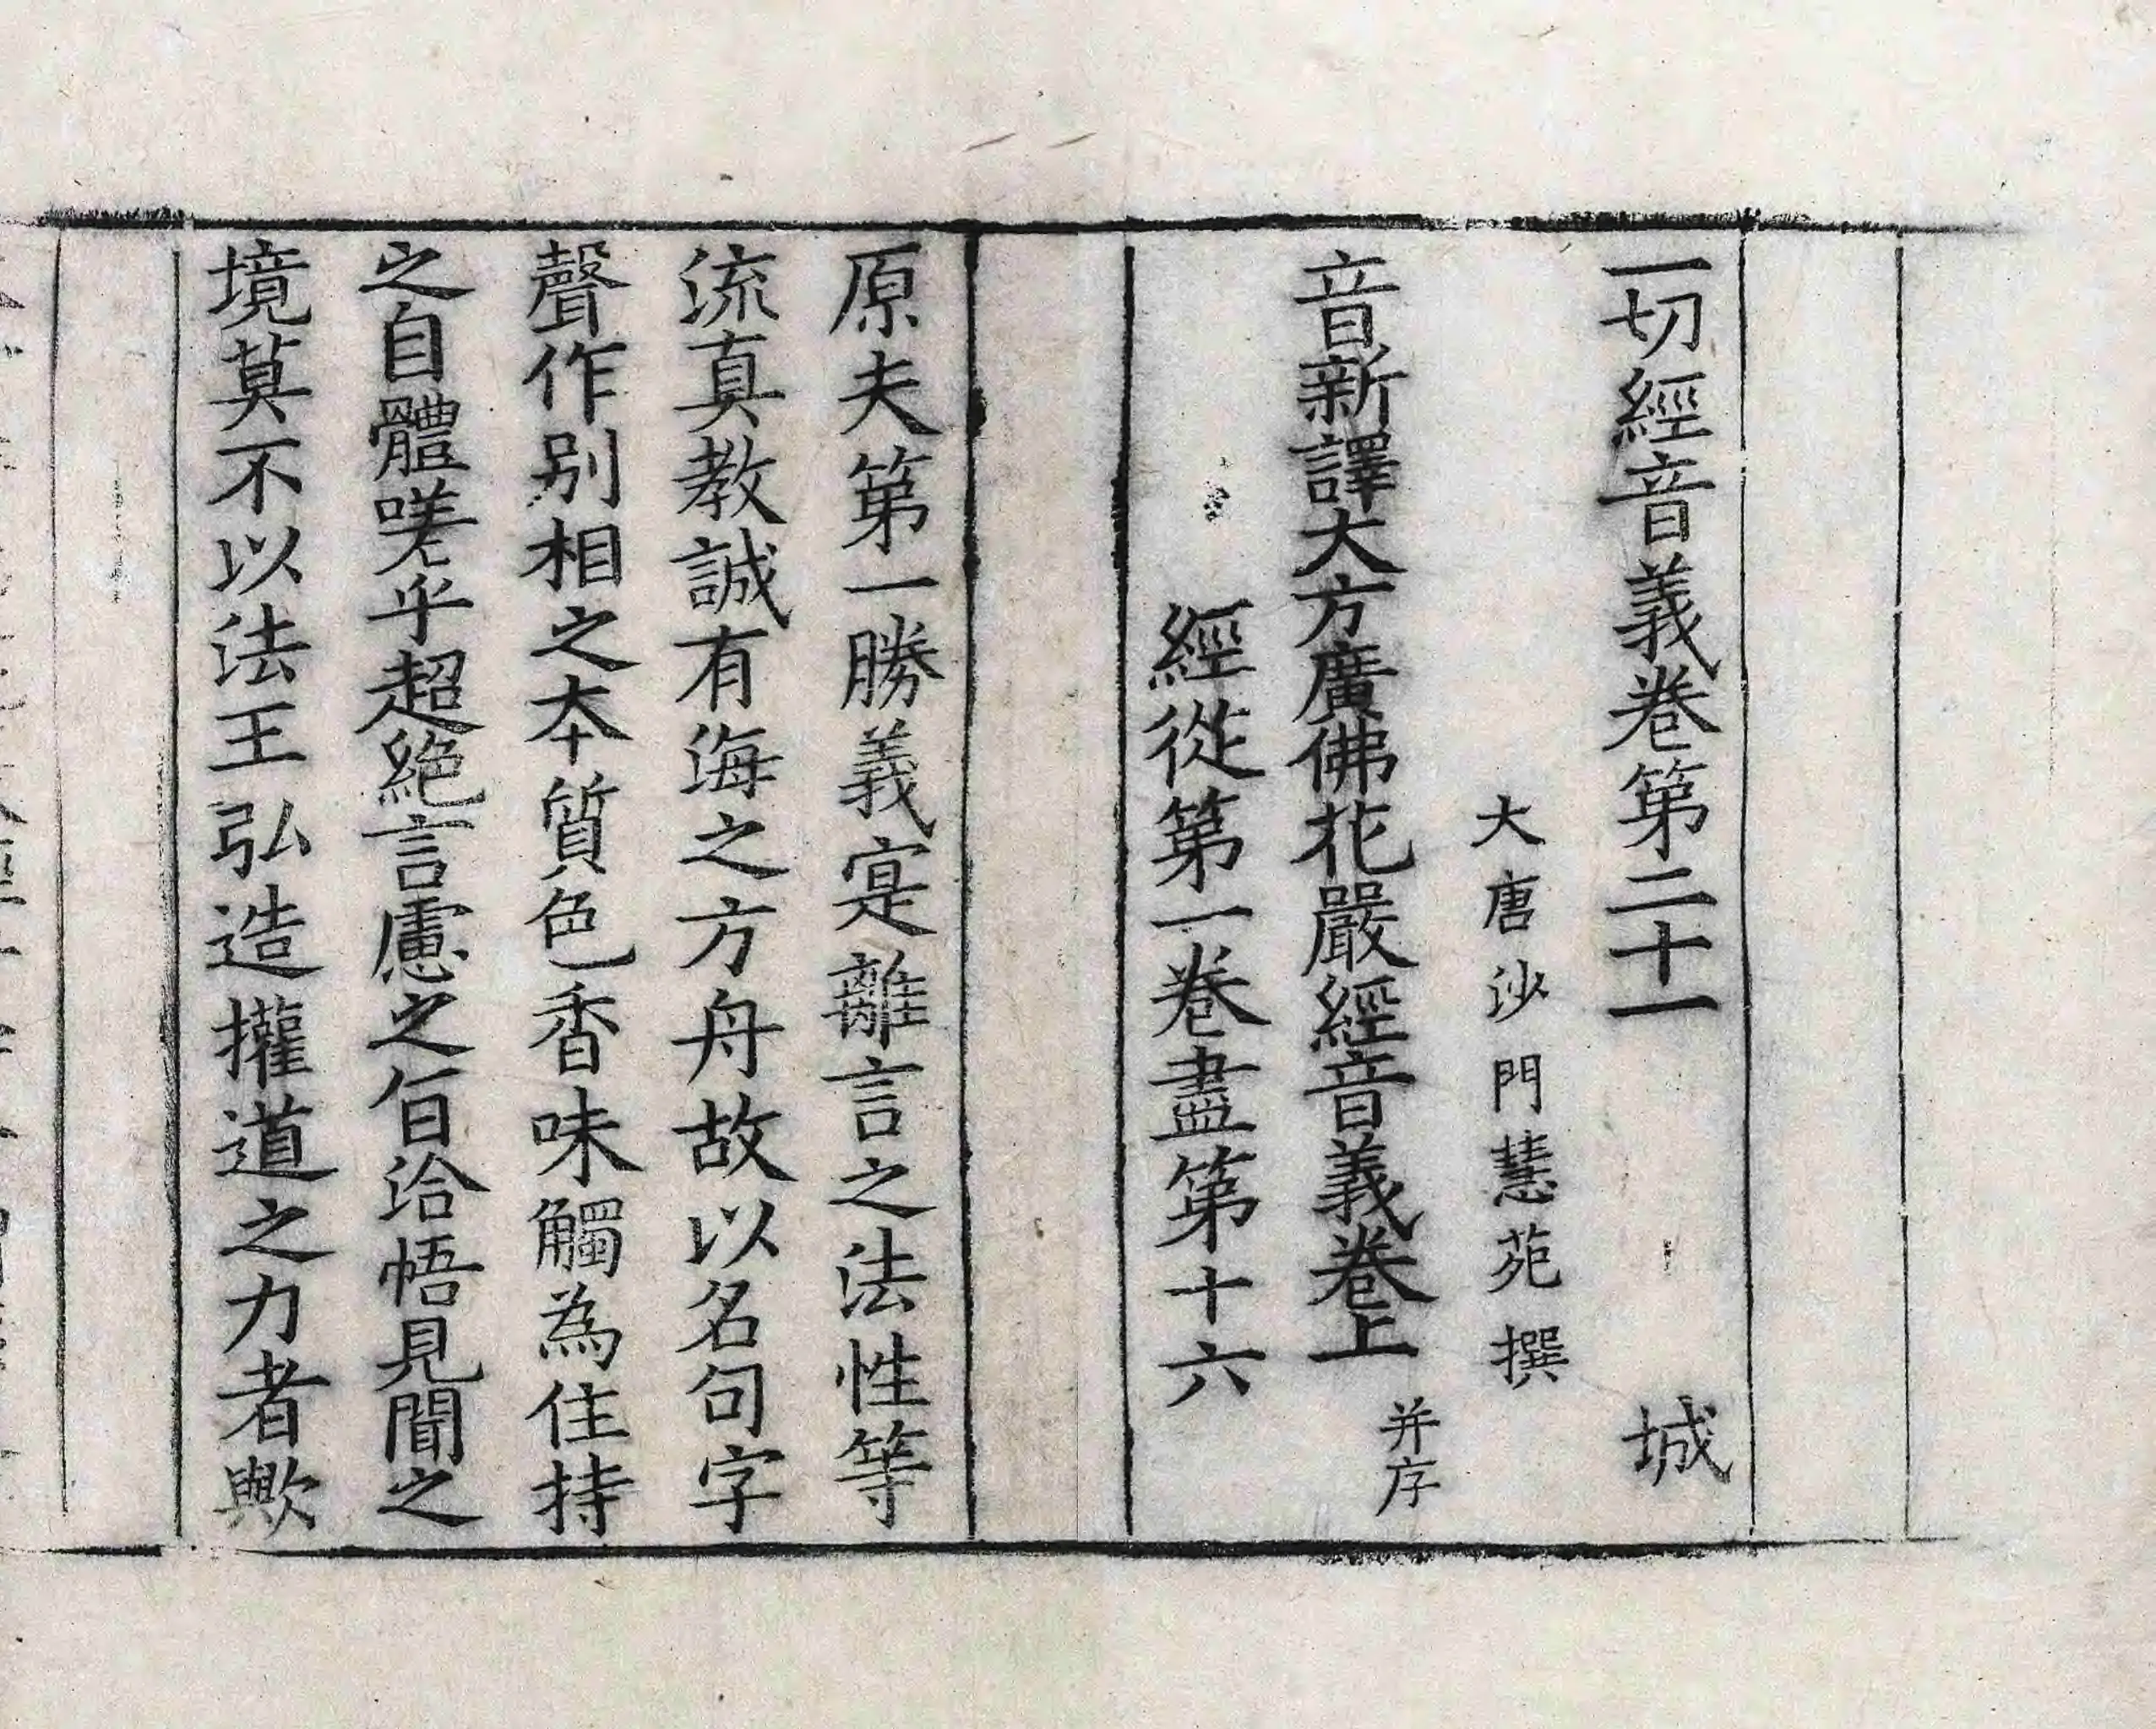 一切經音義卷第二十一 城
大唐沙門慧苑撰
音新譯大方廣佛花嚴經音義卷上 并序
經從第一卷盡第十六
原夫第一勝義寔離言之法性等
流真教誠有海之方舟故以名句字
聲作別相之本質色香味觸為住持
之自體嗟乎超絕言慮之旨洽悟見聞之
境莫不以法王弘造權道之力者歟